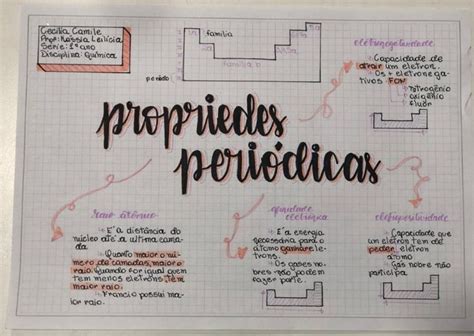 Cecília Camile
Profª: Kássia Leilícia
Serie: 1º ano
Disciplina: Química
família
família b
período
propriedes
periódicas
eletronegatividade
Capacidade de
atrair um eletron.
Os + eletronega
tivos FON
nitrogênio
oxigênio
fluór
raio atômico
E a distância do
núcleo até a ultima cama
da
Quanto maior o nú
mero de camadas, maior o
raio. Quando for igual quem
tem menos eletrons. Tem
maior raio.
Francio possui ma
ior raio.
afinidade
eletrônica
E a energia
necessária para o
átomo ganhar ele
trons.
Os gases no
bres não podem
fazer parte.
eletropositividade
Capacidade que
um eletros tem de
peder eletron
átomo
Gás nobre não
participa